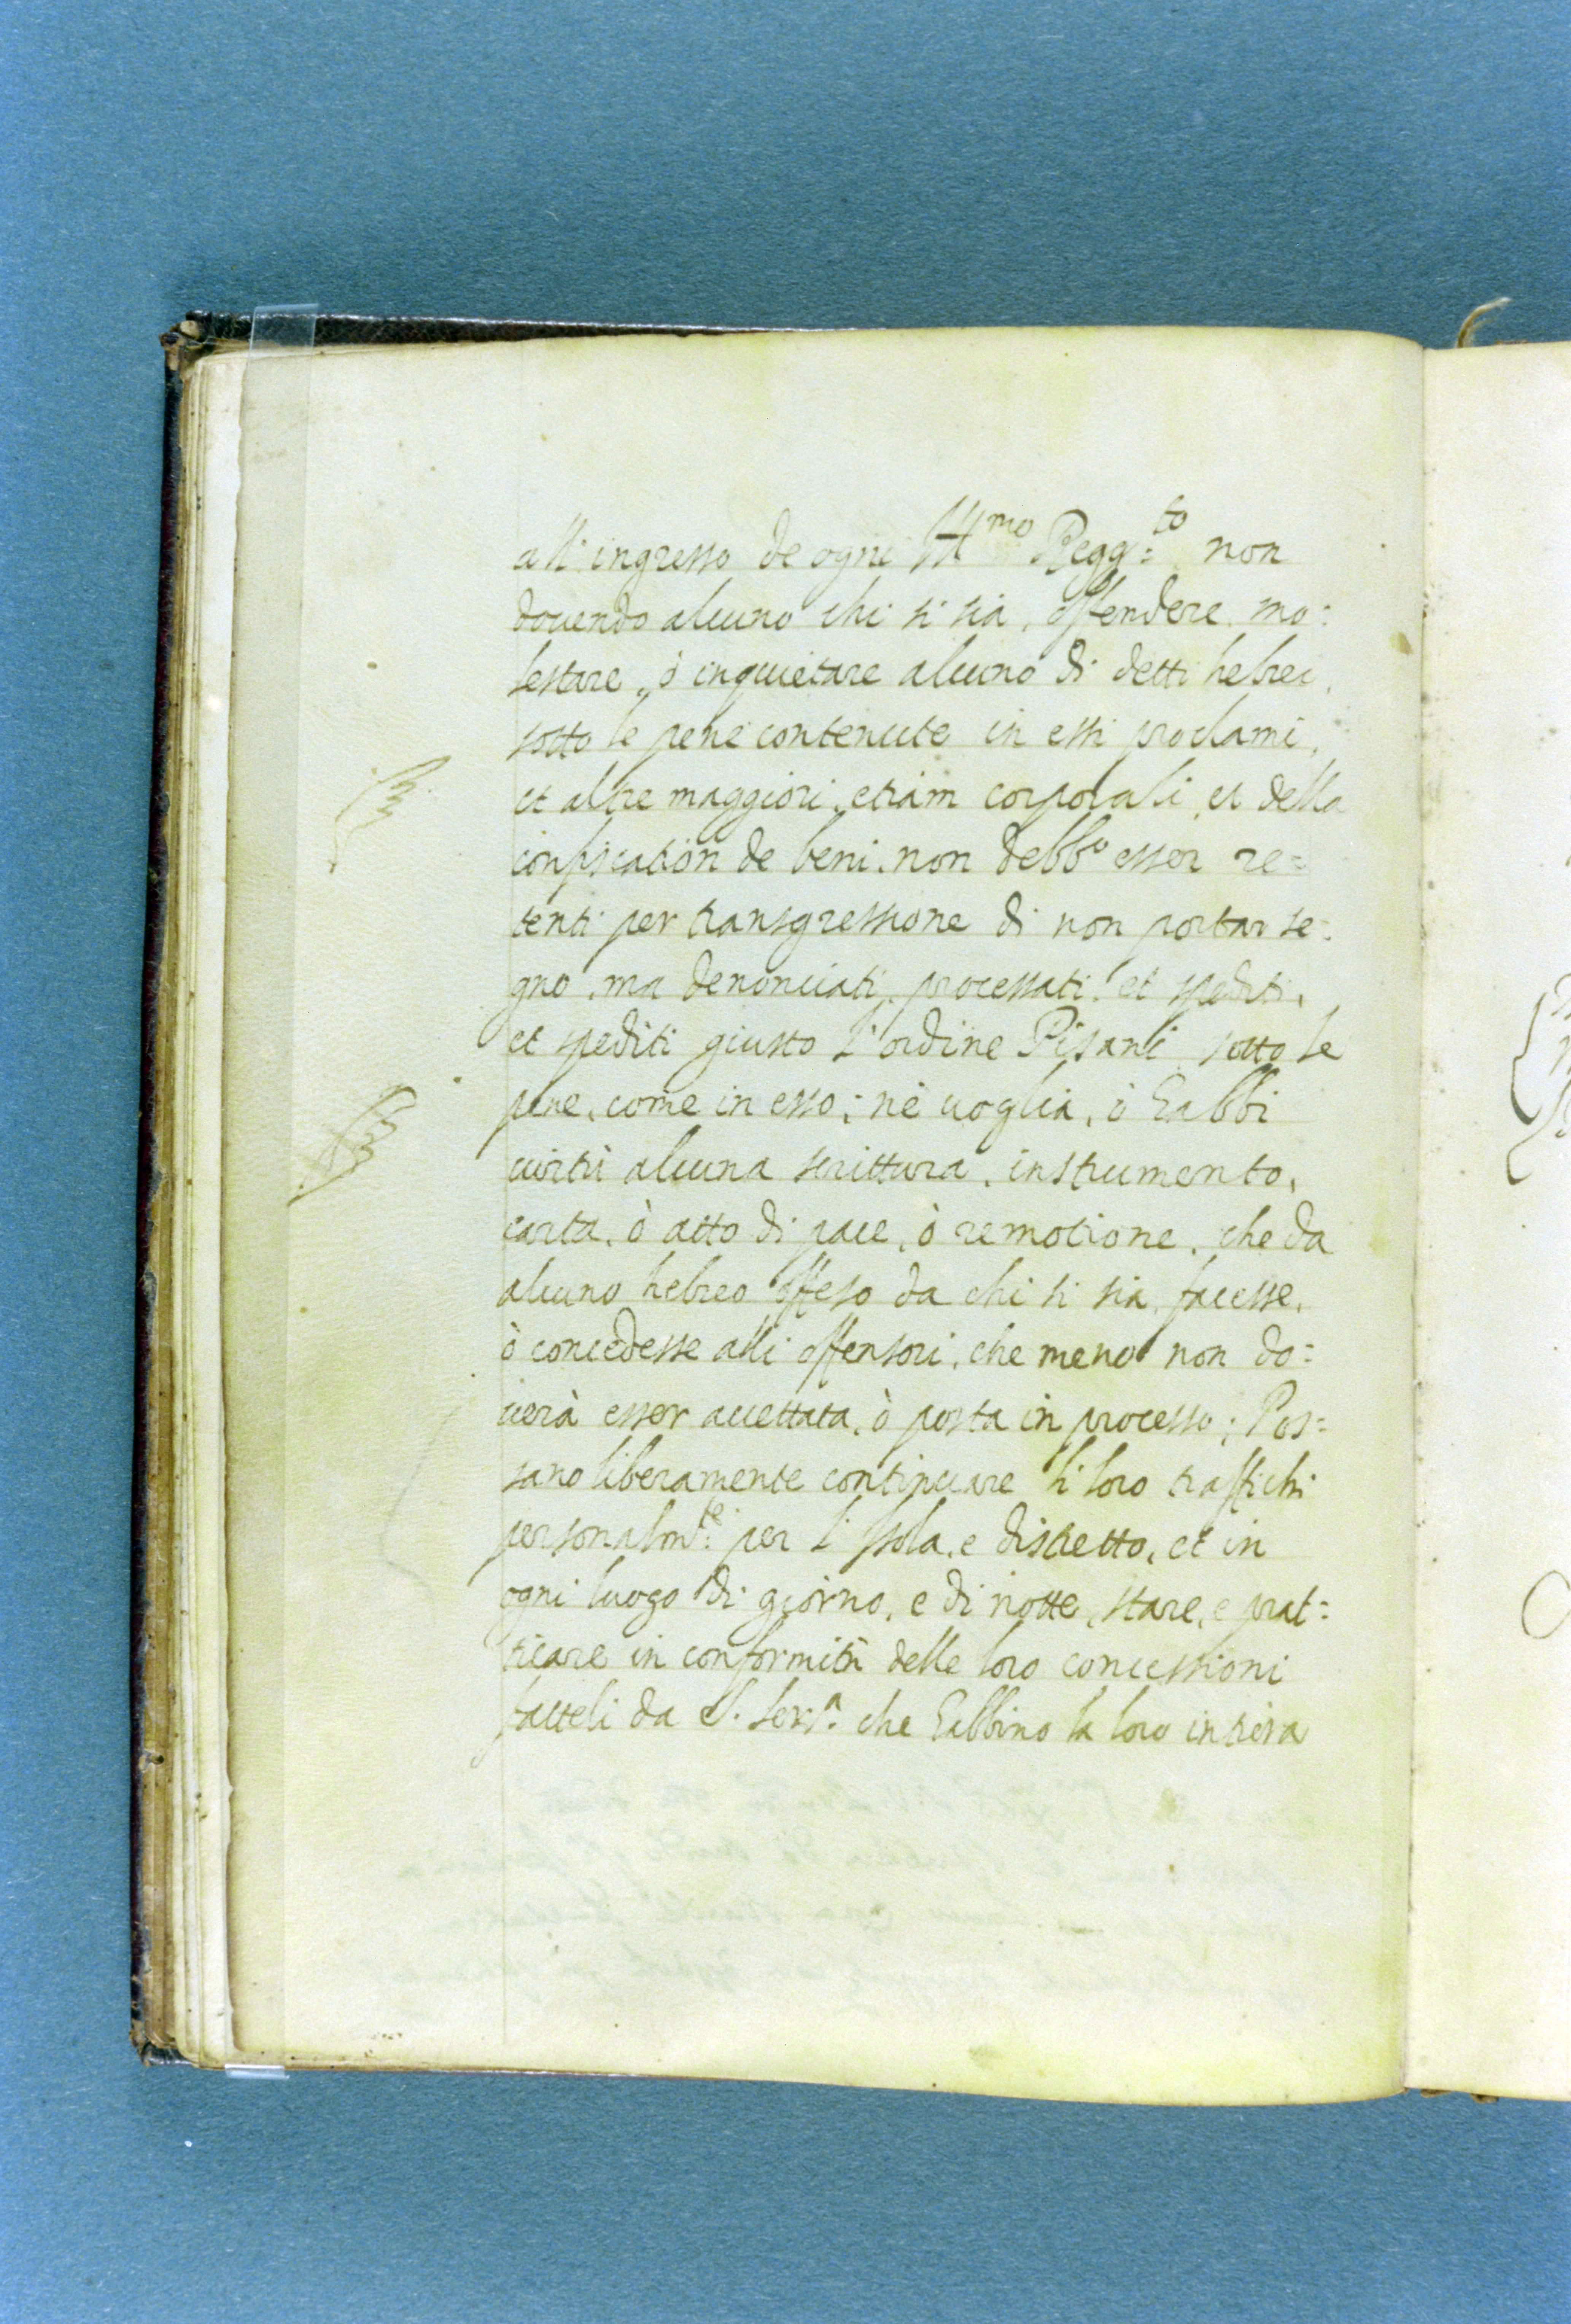 all' ingresso de ogni Ill.mo Regg:to non
douendo alcuno chi si sia, offendere mo:
lestare, ò inquietare alcuno di detti hebrei,
sotto le pene contenute in essi proclami,
et altre maggiori, etiam corporali, et della
confiscation de beni. non debb.o esser re=
tenti per transgressione di non portar se:
gno, ma denonciati, processati, et spediti,
et spediti giusto l' ordine Pisani sotto le
pene, come in esso; nè uaglia, ò habbi
uirtù alcuna scrittura, instrumento,
carta, ò atto di pace, ò remotione, che da
alcuno hebreo offeso da chi si sia, facesse,
ò concedesse alli offensori, che meno non do:
uerà esser accettata, ò posta in processo; Pos=
sano liberamente continuare li loro traffichi
personalm:te per l' Isola, e distretto, et in
ogni luogo di giorno, e di notte, stare, e prat=
ticare in conformità delle loro concessioni
fatteli da S. Ser.tà che habbino la loro intiera